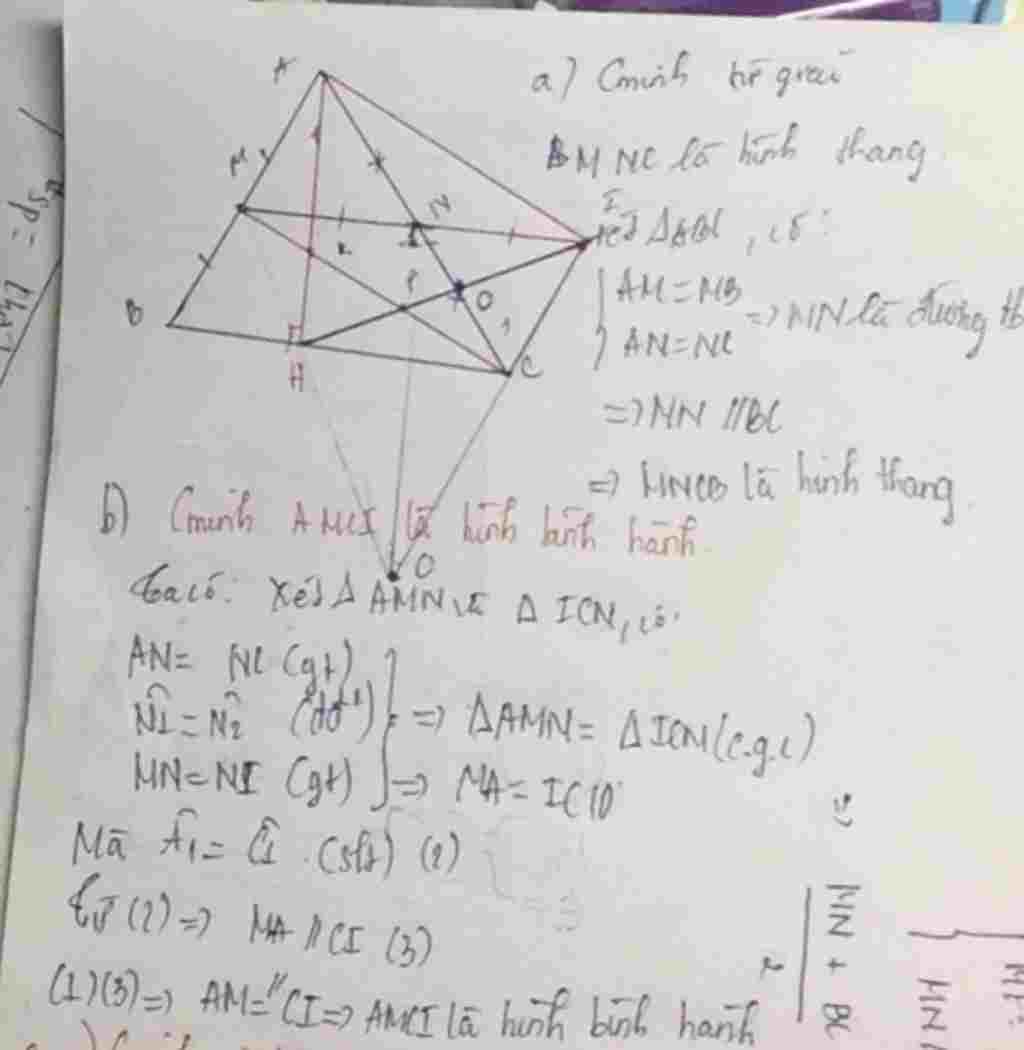 a) Cminh tứ giác
BMNC là hình thang
Xét ΔABC, có:
AM = MB
AN = NC
=> MN là đường tb
=> MN // BC
=> MNCB là hình thang
A
M
N
I
K
P
O
B
H
C
1
O
b) Cminh AMCI là hình bình hành
Ta có: Xét Δ AMN và Δ ICN, có:
AN = NC (gt)
N1 = N2 (đđ) => ΔAMN = ΔICN (c.g.c)
MN = NI (gt) => MA = IC (1)
Mà Â1 = Ĉ1 (slt) (2)
Từ (2) => MA // CI (3)
(1)(3) => AM =// CI => AMCI là hình bình hành
=>
MN + BC
2